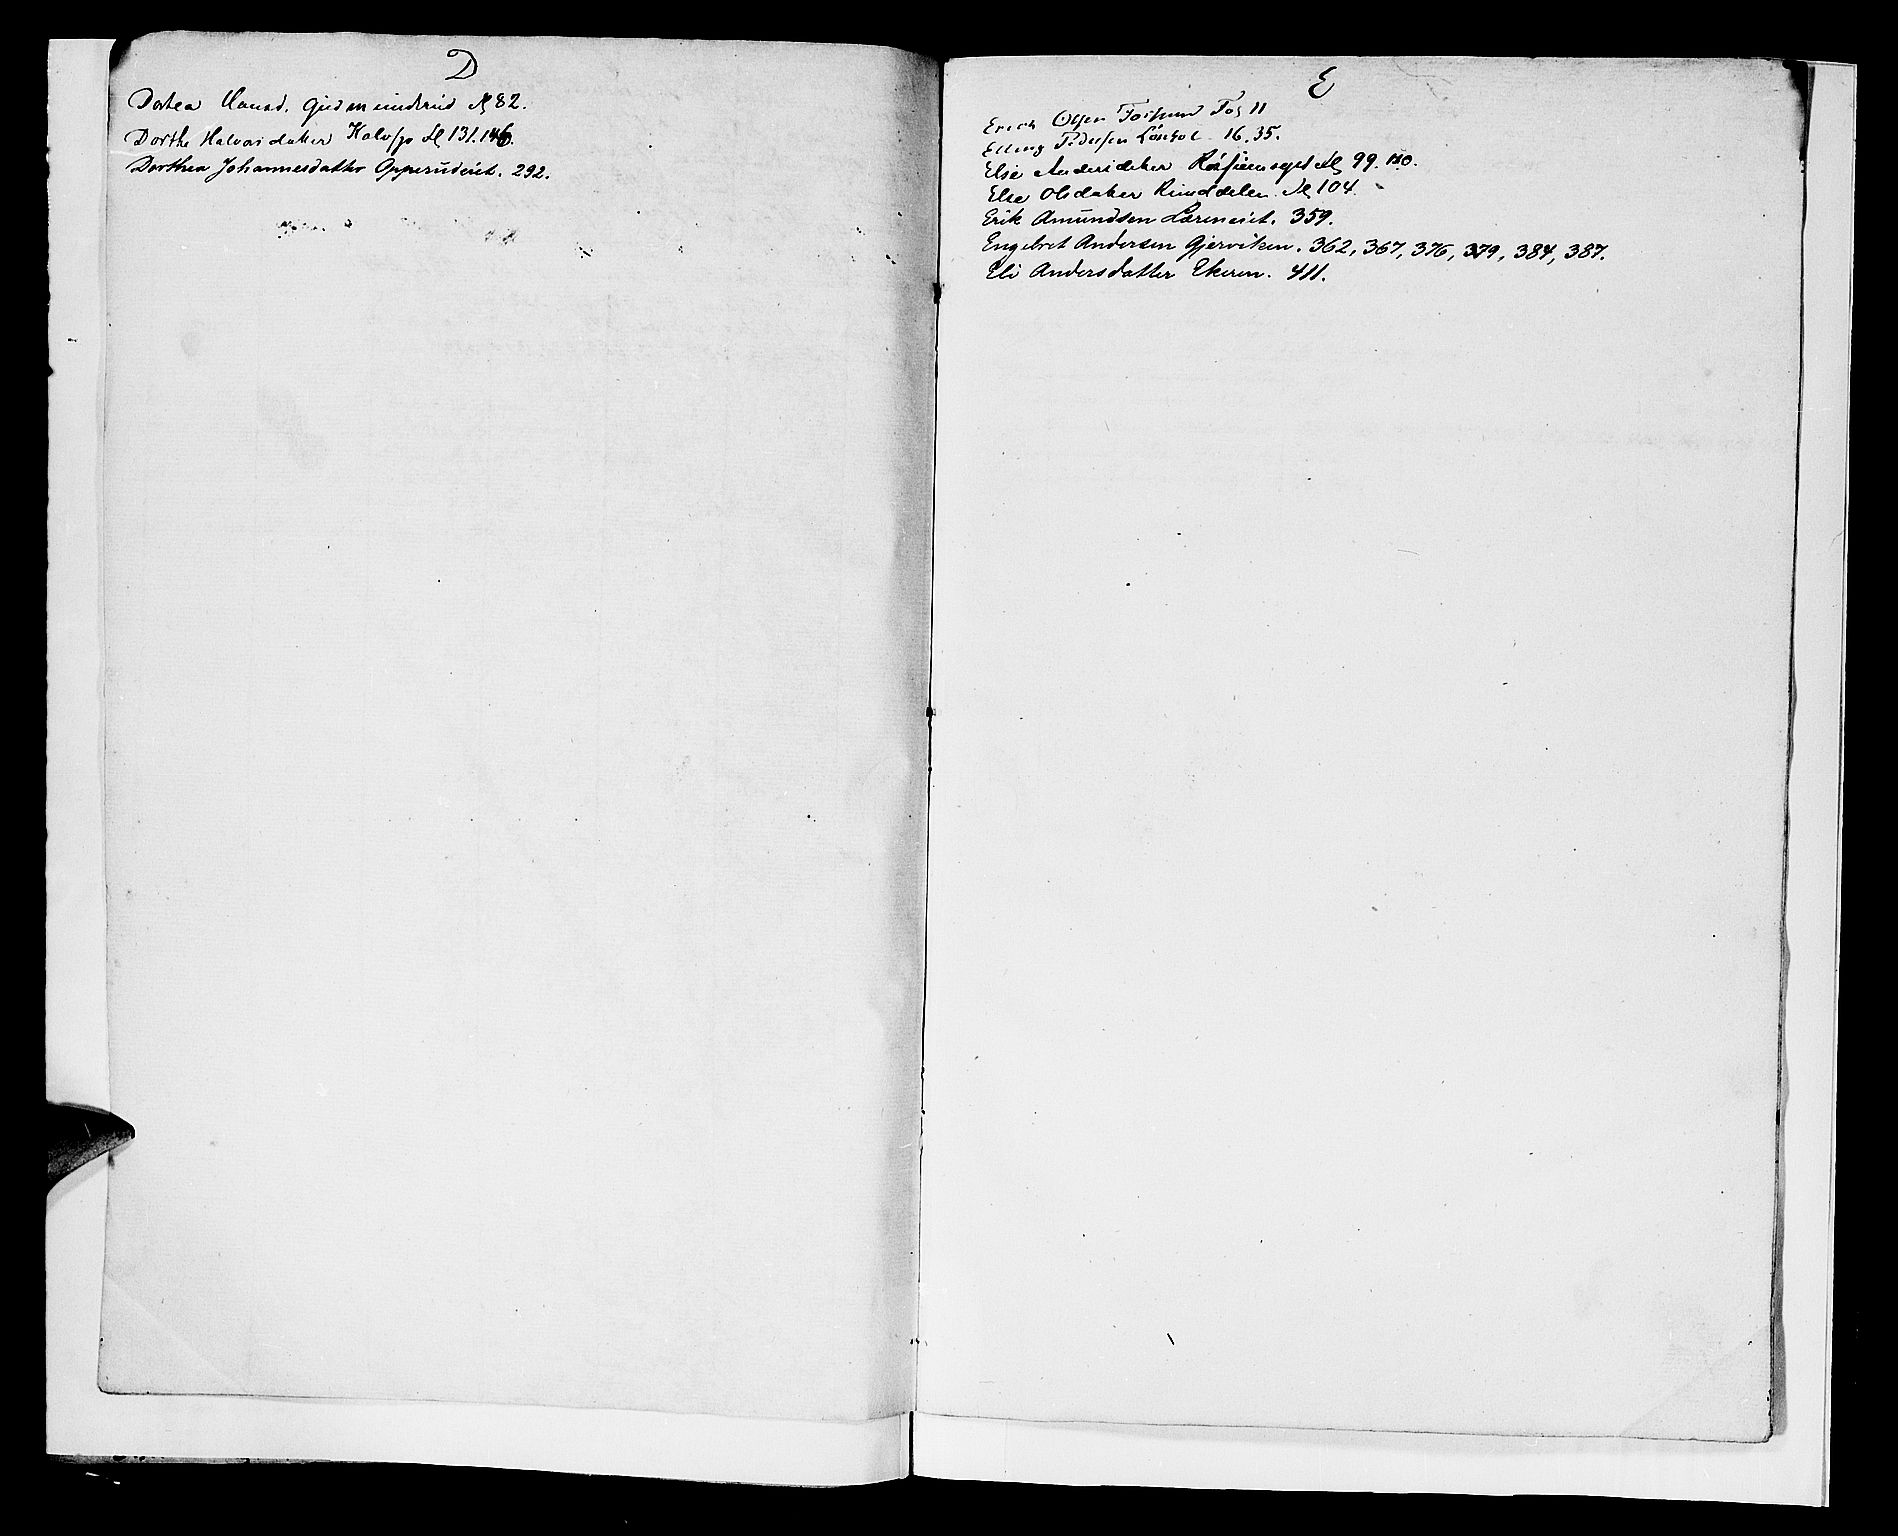 D
Dorthea Hansd. Gudmundsrud № 82.
Dorthe Halvorsdatter Kalvsjø № 131. 146.
Dorthea Johannesdatter Opperudeiet. 292.
E
Erich Olsen Fol 11
Elling Pedersen 16. 35.
Else Andersdatter № 99. 110.
Else Olsdatter Rinddelen № 104.
Erik Amundsen Lærineiet. 359.
Engebret Andersen Gjerviken. 362, 367, 376, 379, 384, 387.
Eli Andersdatter Ekeren. 411.